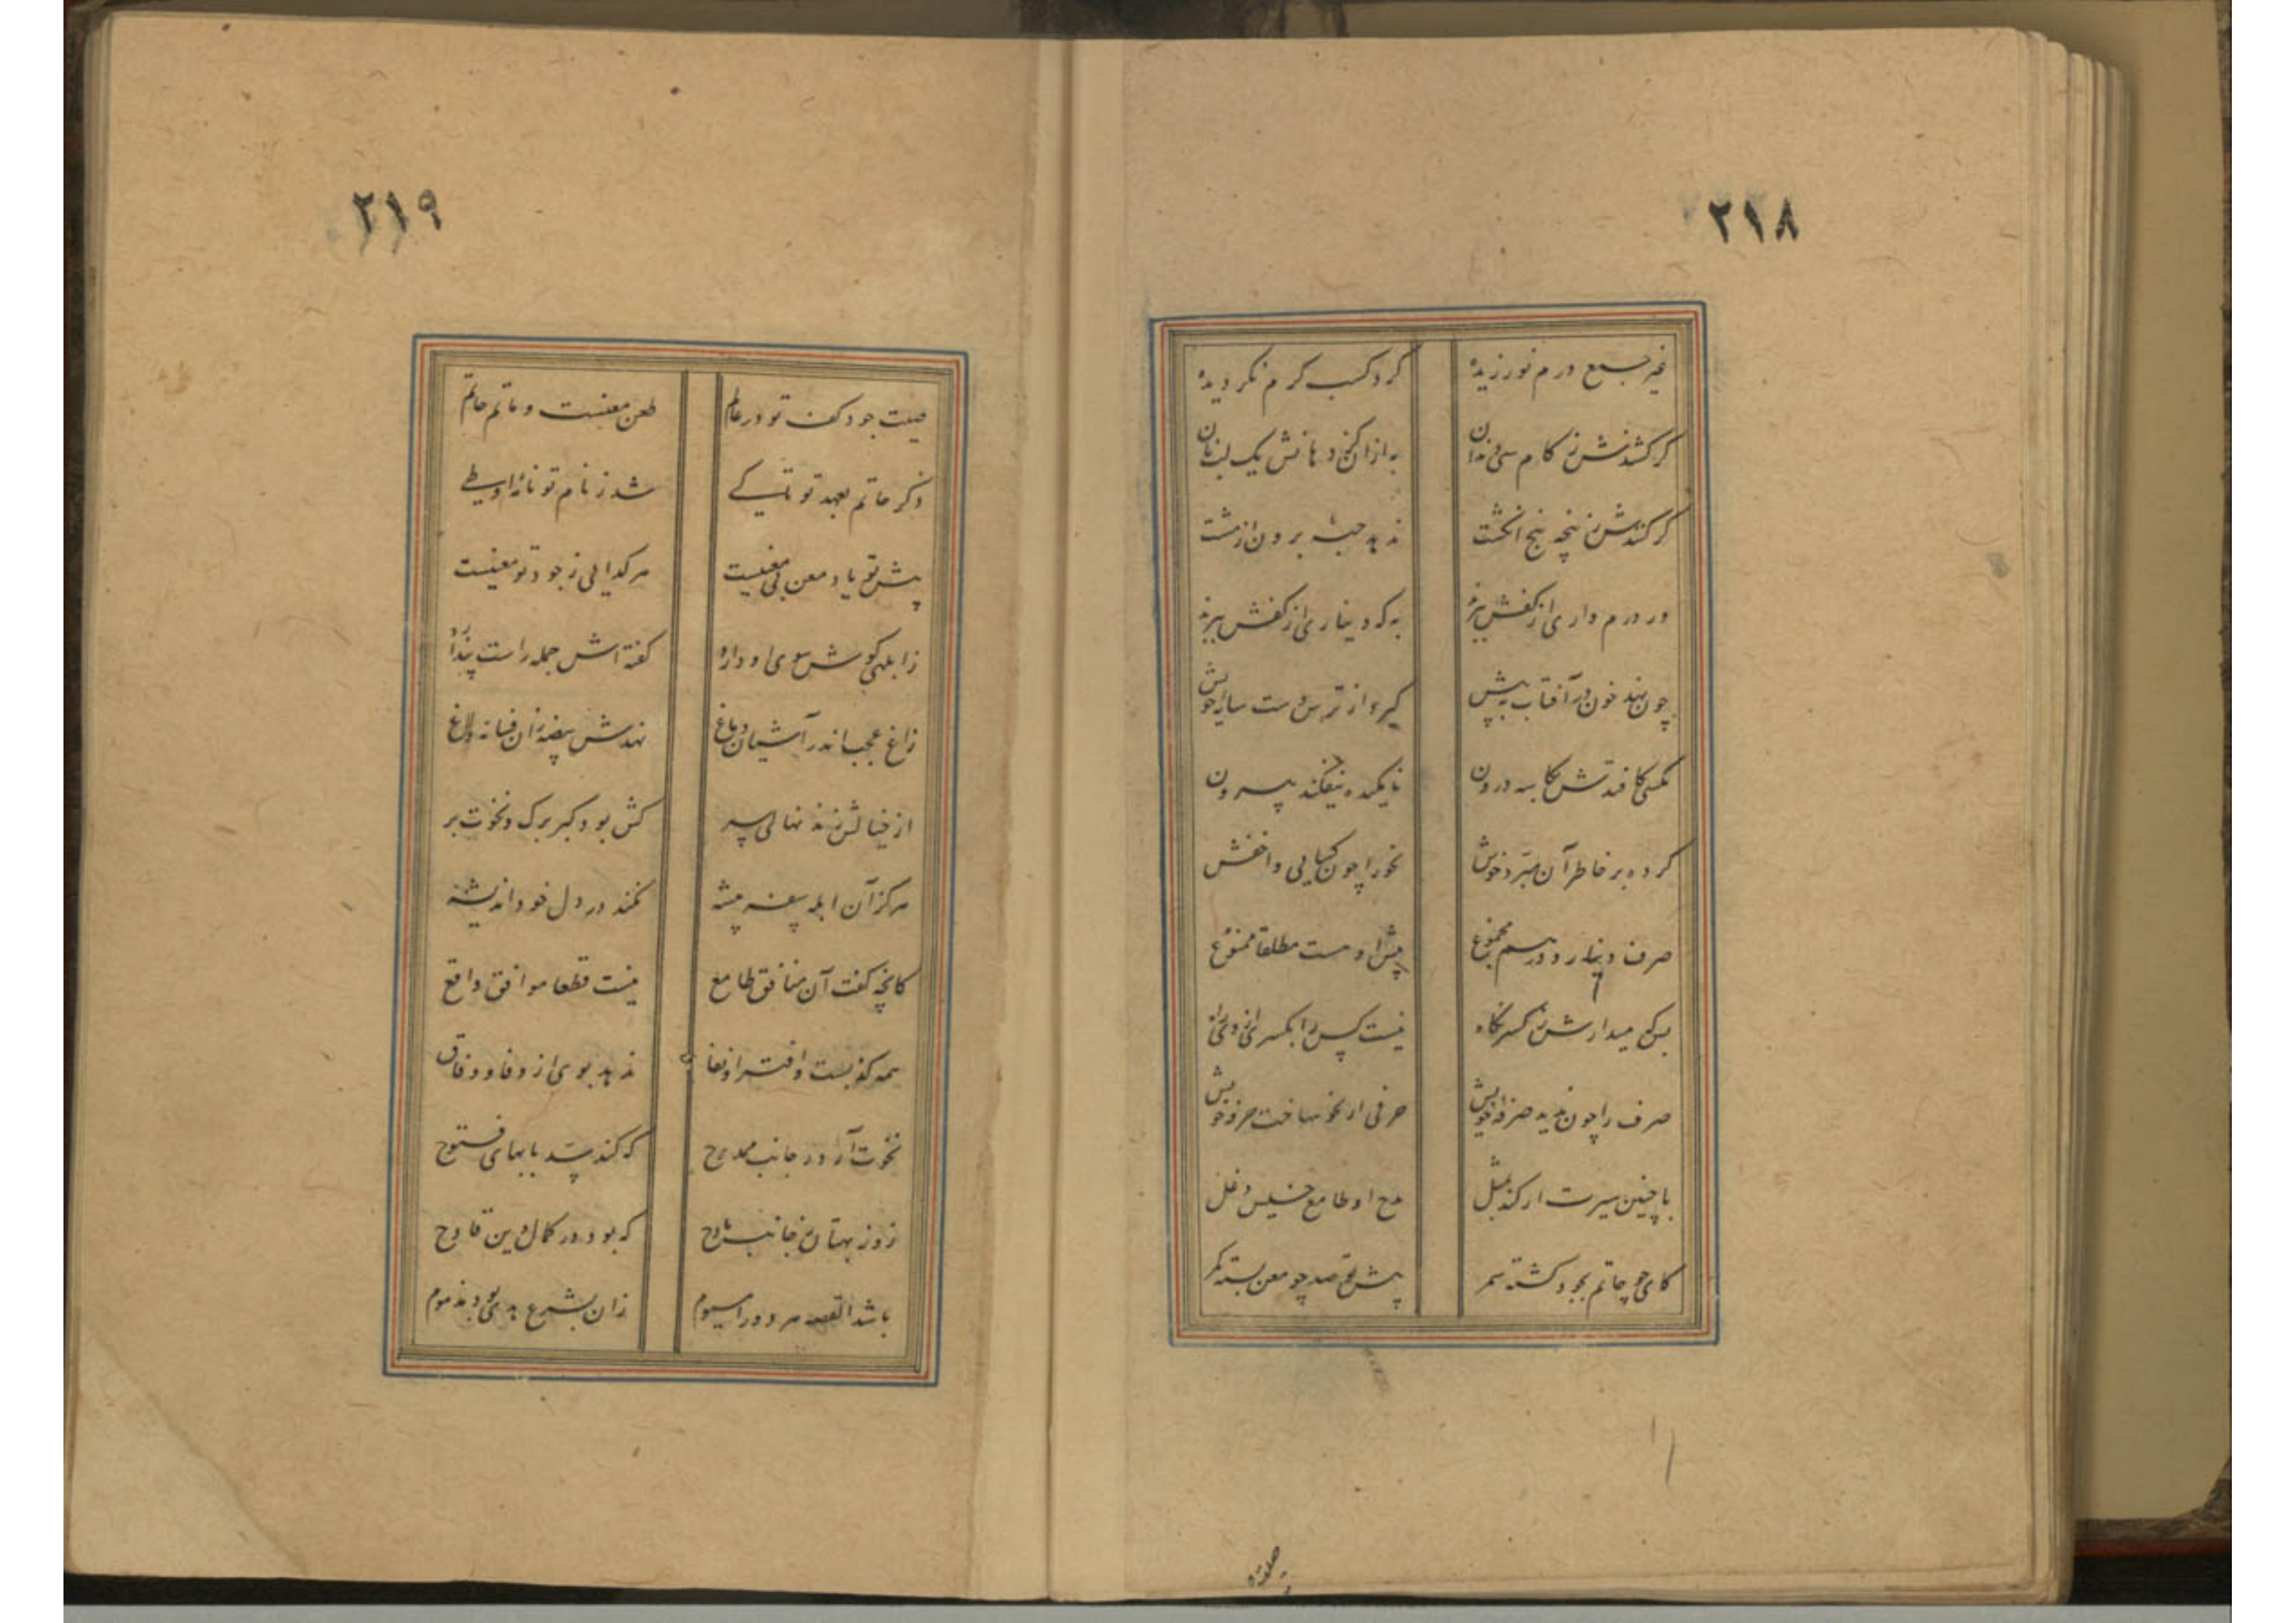 ۲۱۸
غیر جمع درم نورزیده
گرد کسب کرم نگردیده
گر کشندش ز کام سی دندان
به از آن کز دهانش یک لب نان
گر کنندش ز پنجه پنج انگشت
ندهد حبه برون از مشت
ور درم داری از کفش ببرند
به که دیناری از کفش ببرند
چون نهد خون در آفتاب به پیش
گیرد از ترس دست سایه خویش
مکسی کافتدش بکاسه درون
تا نمکیده نیفکند بیرون
کرده بر خاطر آن مبرد خوش
نحو را چون کسایی و اخفش
صرف دینار و درهم مجموع
پیش او هست مطلقا ممنوع
صرف را چون ندید صرفه خویش
حرفی از نحو ساخت حرفه خویش
با چنین سیرت ار کند بمثل
مدح او طامع خسیس دغل
کای چو حاتم بجود گشته سمر
پیش تو صد چو معن بسته کمر
۲۱۹
صیت جود کف تو در عالم
طعن معنست و ماتم حاتم
ذکر حاتم بعهد تو تا کی
شد ز نام تو نامه او طی
پیش تو یاد معن بی معنیست
هر گدایی ز جود تو معنیست
ز ابلهی گوش سوی او دارد
گفته اش جمله راست پندارد
زاغ عجب اندر آشیان دماغ
نهدش بیضه زان فسانه و لاغ
از خیالش زند نهالی سر
کش بود کبر برگ و نخوت بر
هرگز آن ابله سفه پیشه
نکند در دل خود اندیشه
کانچه گفت آن منافق طامع
نیست قطعا موافق واقع
همه کذبست و افترا و نفاق
ندهد بوی از وفا و وفاق
نخوت آرد در جانب ممدوح
که کند سد بابهای فتوح
زور بهتان ز جانب مادح
که بود در کمال دین قادح
باشد القصه هر دو را میشوم
زان بشرع هدی بود مذموم